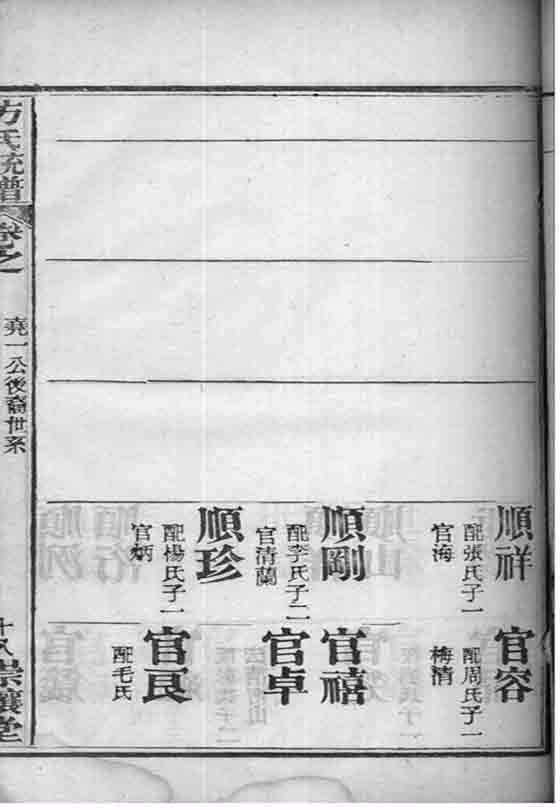 順祥
配張氏子一
官海
順剛
配李氏子二
官清蘭
順珍
配楊氏子一
官炳
官容
配周氏子一
梅清
官禧
官卓
官艮
配毛氏
方氏統譜
卷之
堯一公後裔世系
十八
崇讓堂